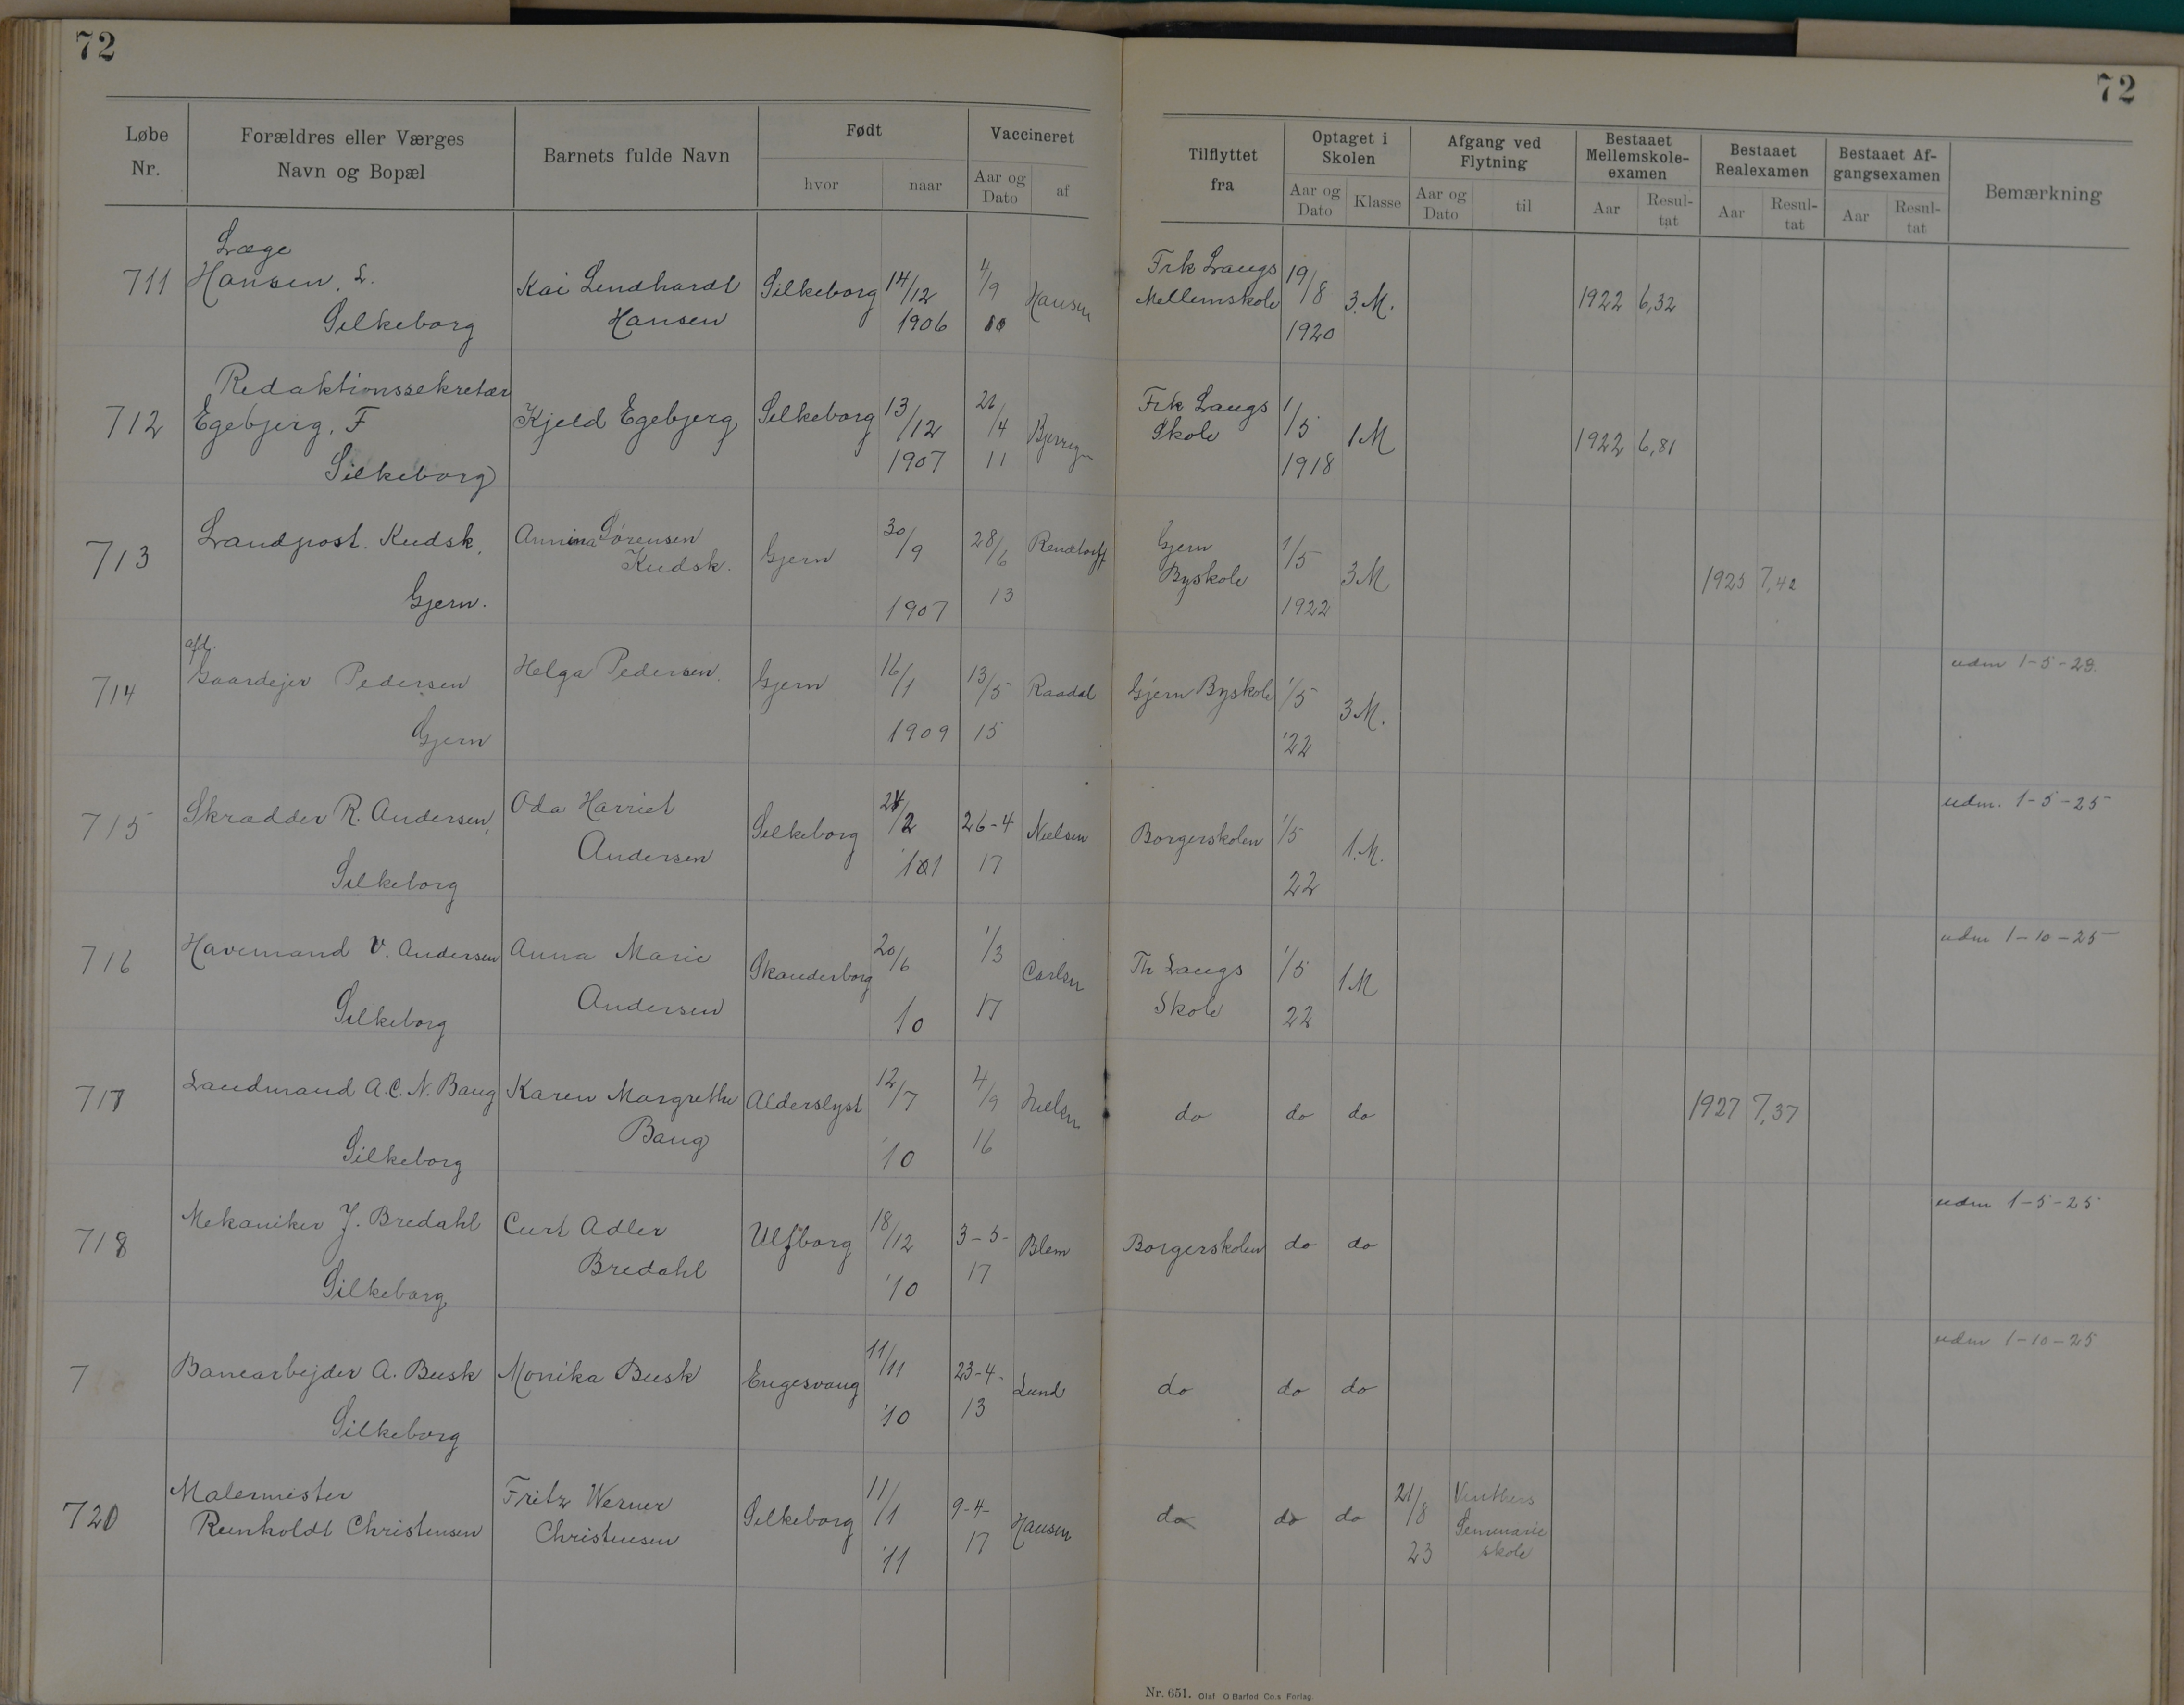 72
72
Løbe Nr.
Forældres eller Værges Navn og Bopæl
Barnets fulde Navn
Født
hvor
naar
Vaccineret
Aar og Dato
af
Tilflyttet fra
Optaget i Skolen
Aar og Dato
Klasse
Afgang ved Flytning
Aar og Dato
til
Bestaaet Mellemskole-examen
Aar
Resul-tat
Bestaaet Realexamen
Aar
Resul-tat
Bestaaet Af-gangsexamen
Aar
Resul-tat
Bemærkning
711 Læge Hansen, L. Silkeborg Kai Lendhardt Hansen Silkeborg 14/12 1906 4/9 10 Hansen Frk Langs Mellemskole 19/8 1920 3.M. 1922 6,32
712 Redaktionssekretær Egebjerg, F Silkeborg Kjeld Egebjerg Silkeborg 13/12 1907 26/4 11 Frk Langs Skole 1/5 1918 1M 1922 6,81
713 Landpost. Kudsk, Gjern. Annina Sørensen Kudsk. Gjern 30/9 1907 28/6 13 Rendtorff Gjern Byskole 1/5 1922 3M 1925 7,42
714 afd. Gaardejer Pedersen Gjern Helga Pedersen. Gjern 16/1 1909 13/5 15 Raadal Gjern Byskole 1/5 '22 3M. udm 1-5-23.
715 Skrædder R. Andersen, Silkeborg Oda Harriet Andersen Silkeborg 24/2 26-4 17 Nielsen Borgerskolen 1/5 22 1.M. udm. 1-5-25
716 Havemand V. Andersen Silkeborg Anna Marie Andersen Skanderborg 20/6 10 1/3 17 Carlsen Th Langs Skole 1/5 22 1M udm 1-10-25
717 Landmand A.C.N. Bang Silkeborg Karen Margrethe Bang Alderslyst 12/7 '10 4/9 16 Nielsen do do do 1927 7,37
718 Mekaniker J. Bredahl Silkeborg Curt Adler Bredahl Ulfborg 18/12 '10 3-5- 17 Blem Borgerskolen do do udm 1-5-25
7 Banearbejder A. Busk Silkeborg Monika Busk Engesvang 11/11 '10 23-4- 13 Lund do do do udm 1-10-25
720 Malermester Reinholdt Christensen Fritz Werner Christensen Silkeborg 11/1 '11 9-4- 17 Hansen do do do 21/8 23 Vinthers Seminarie skole
Nr. 651. Olaf O Barfod Co.s Forlag.